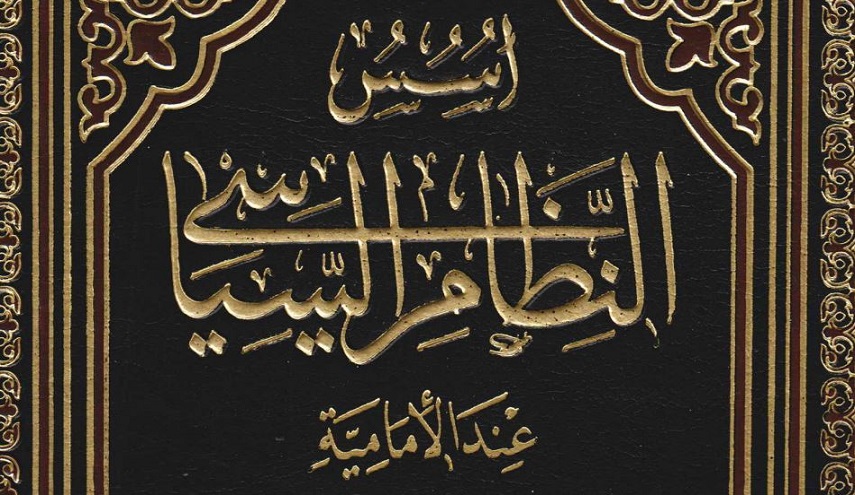 أُسُسُ
النِّظَامِ السِّيَاسِي
عِنْدَ الْأِمَامِيَّةِ